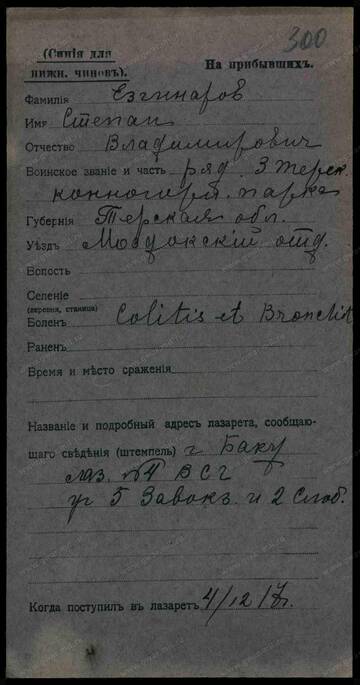 300
(Синія для
нижн. чиновъ).
На прибывшихъ.
Фамилія Езгинаров
Имя Степан
Отчество Владимирович
Воинское званіе и часть ряд. 3 Терск.
конногорн. парка
Губернія Терская обл.
Уѣздъ Моздокскій отд.
Волость
Селеніе
(деревня, станица)
Боленъ Colitis et Bronchit
Раненъ
Время и мѣсто сраженія
Названіе и подробный адресъ лазарета, сообщаю-
щаго свѣдѣнія (штемпель) г. Баку
лаз. №4 ВСГ
уг 5 Завок. и 2 Слоб.
Когда поступилъ въ лазаретъ 4/12 17г.